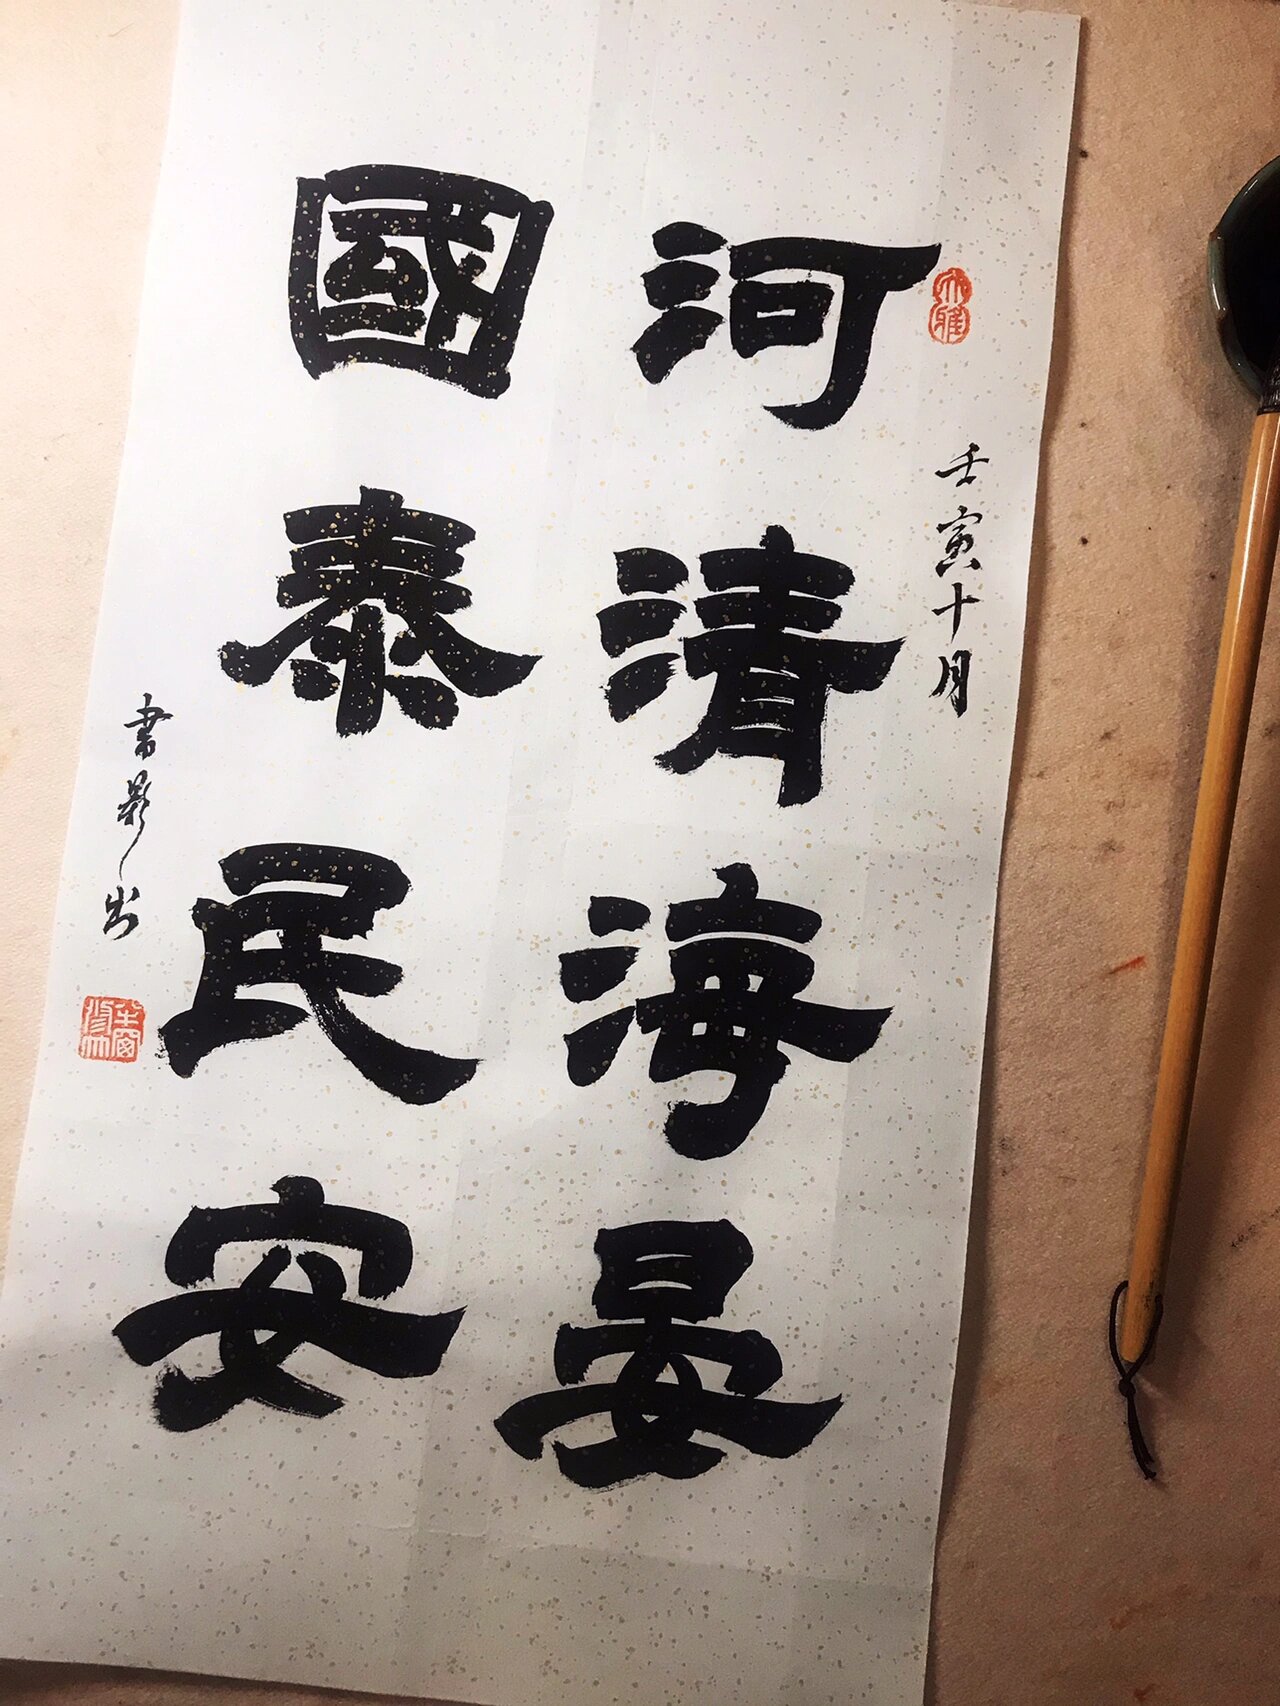 大雅
壬寅十月
河清海晏
國泰民安
書影